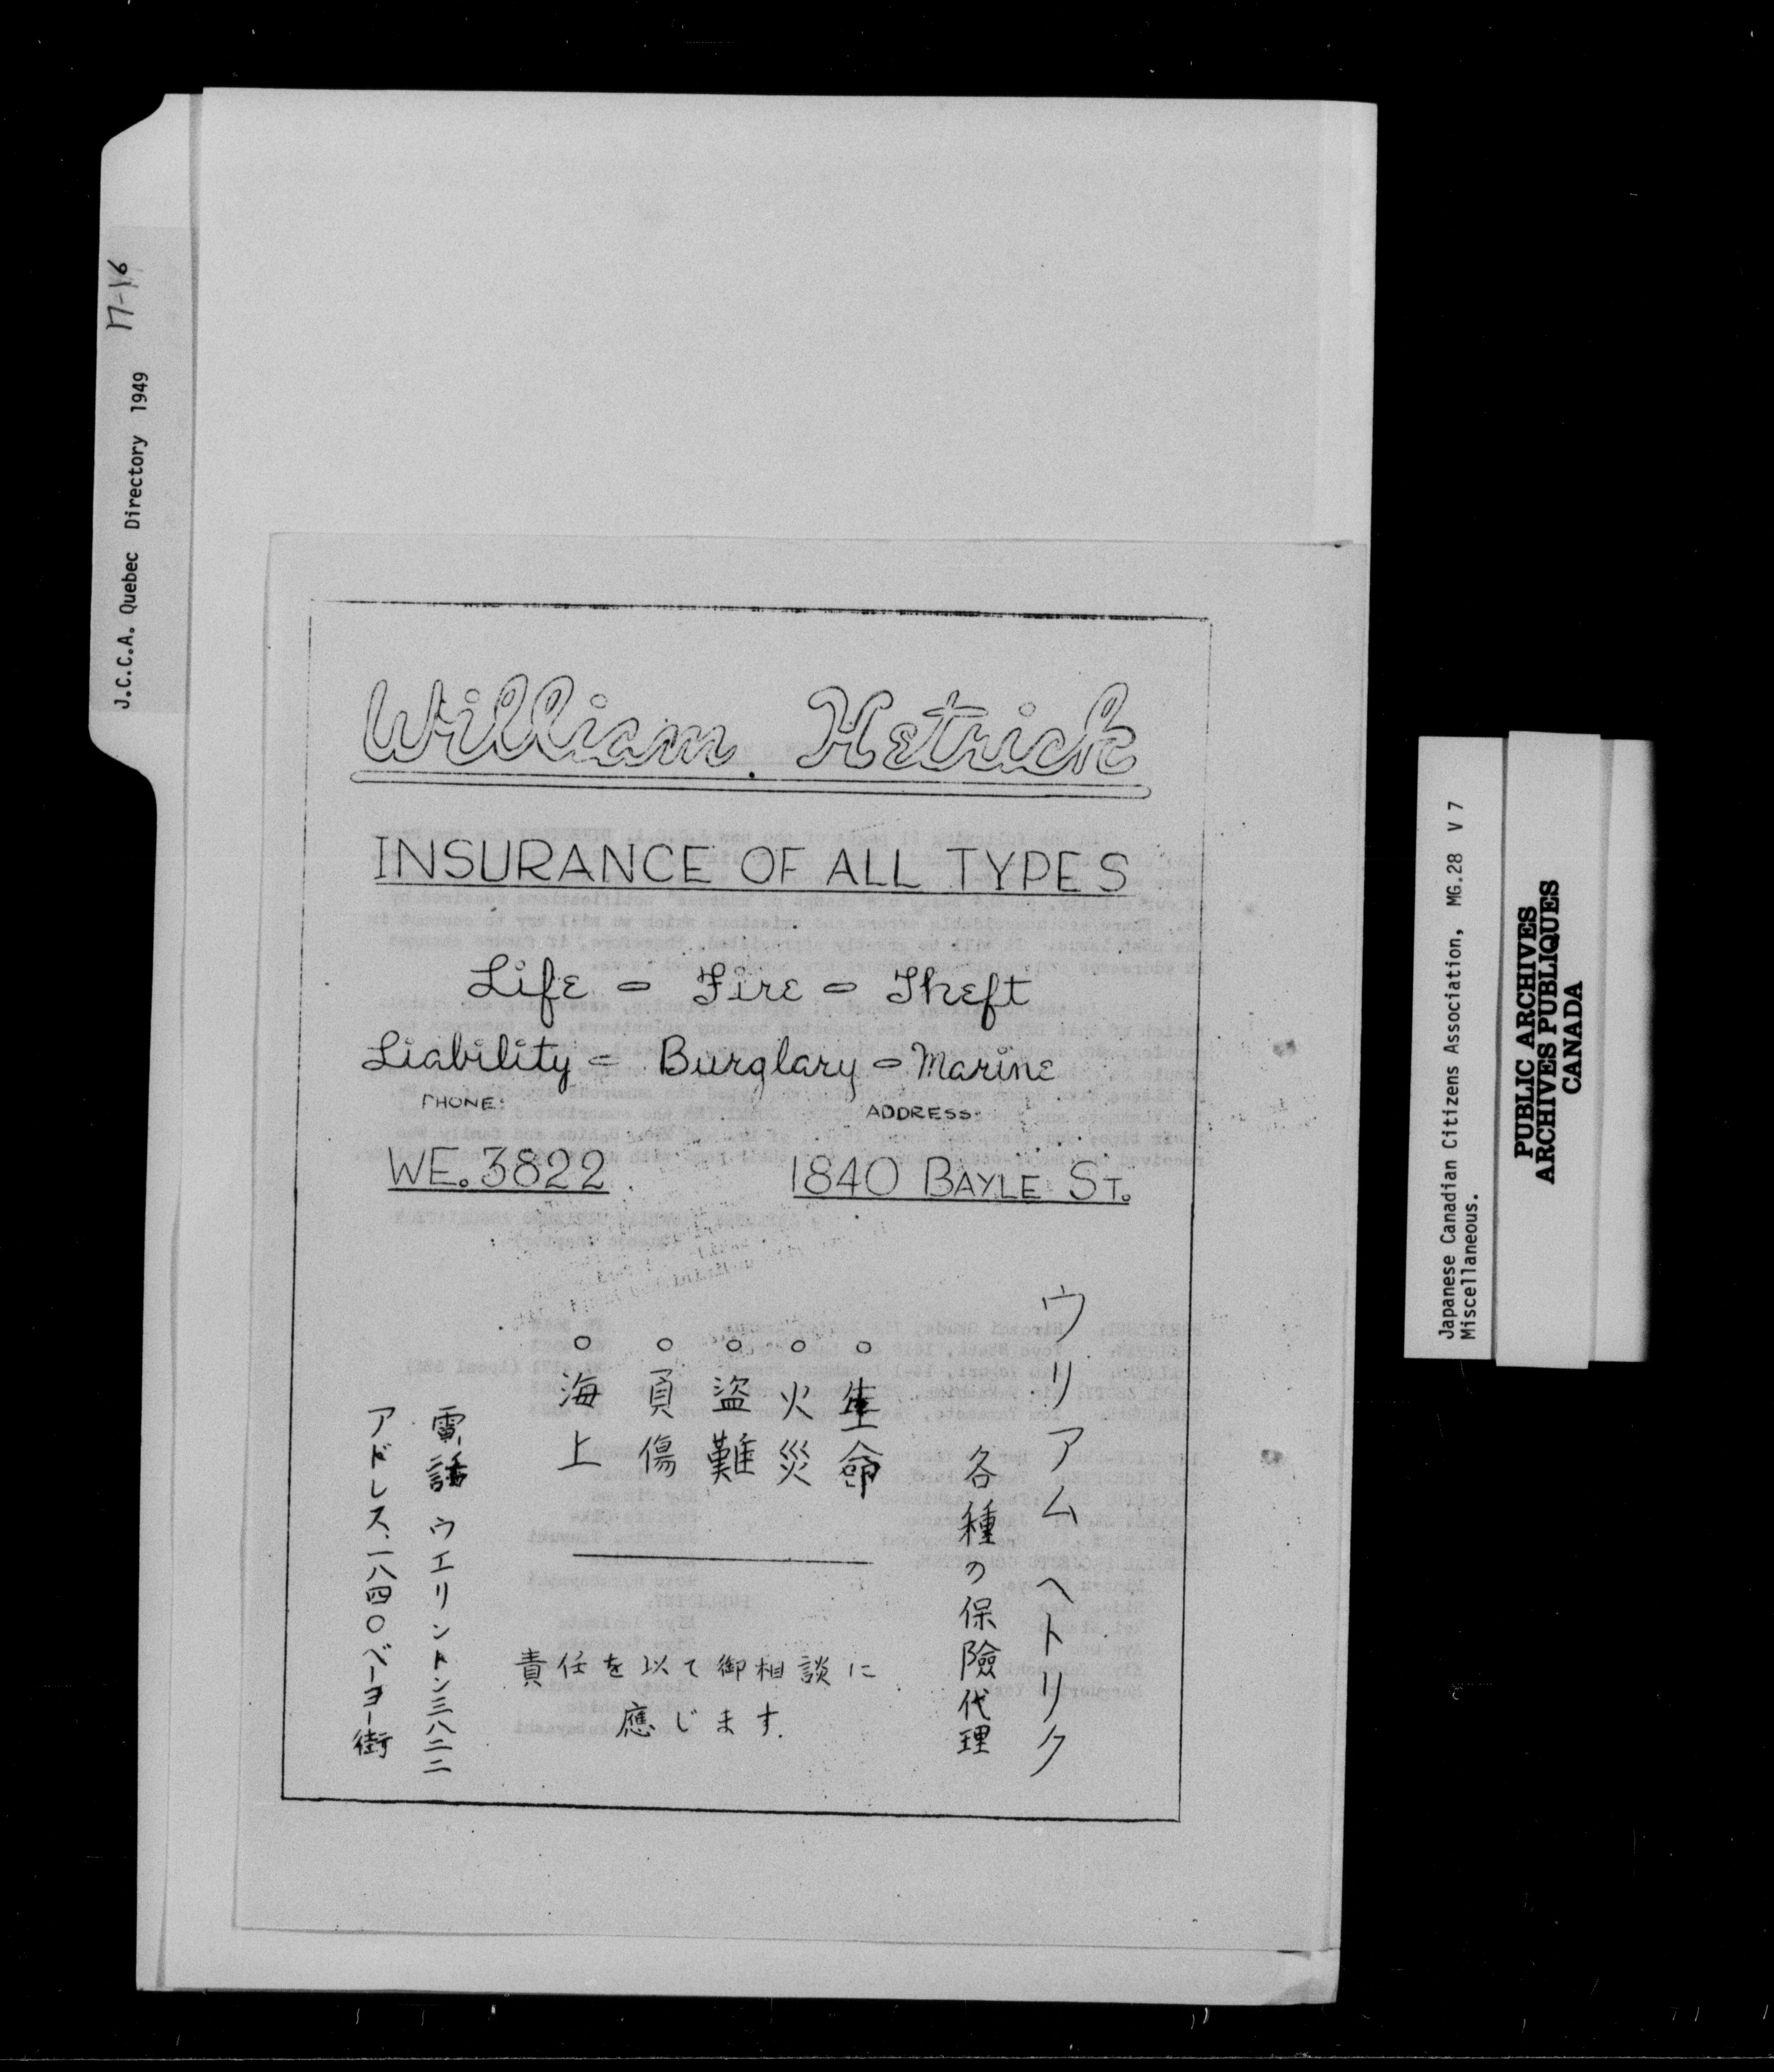 J.C.C.A. Quebec Directory 1949 17-16
William Hetrick
INSURANCE OF ALL TYPES
Life = Fire = Theft
Liability = Burglary = Marine
PHONE:
ADDRESS:
WE. 3822
1840 BAYLE ST.
ウリアム ヘトリク
各種の保險代理
○生命
○火災
○盗難
○負傷
○海上
責任を以て御相談に
應じます.
電話 ウエリントン三八二二
アドレス.一八四〇ベーヨー街
Japanese Canadian Citizens Association, MG.28 V 7
Miscellaneous.
PUBLIC ARCHIVES
ARCHIVES PUBLIQUES
CANADA